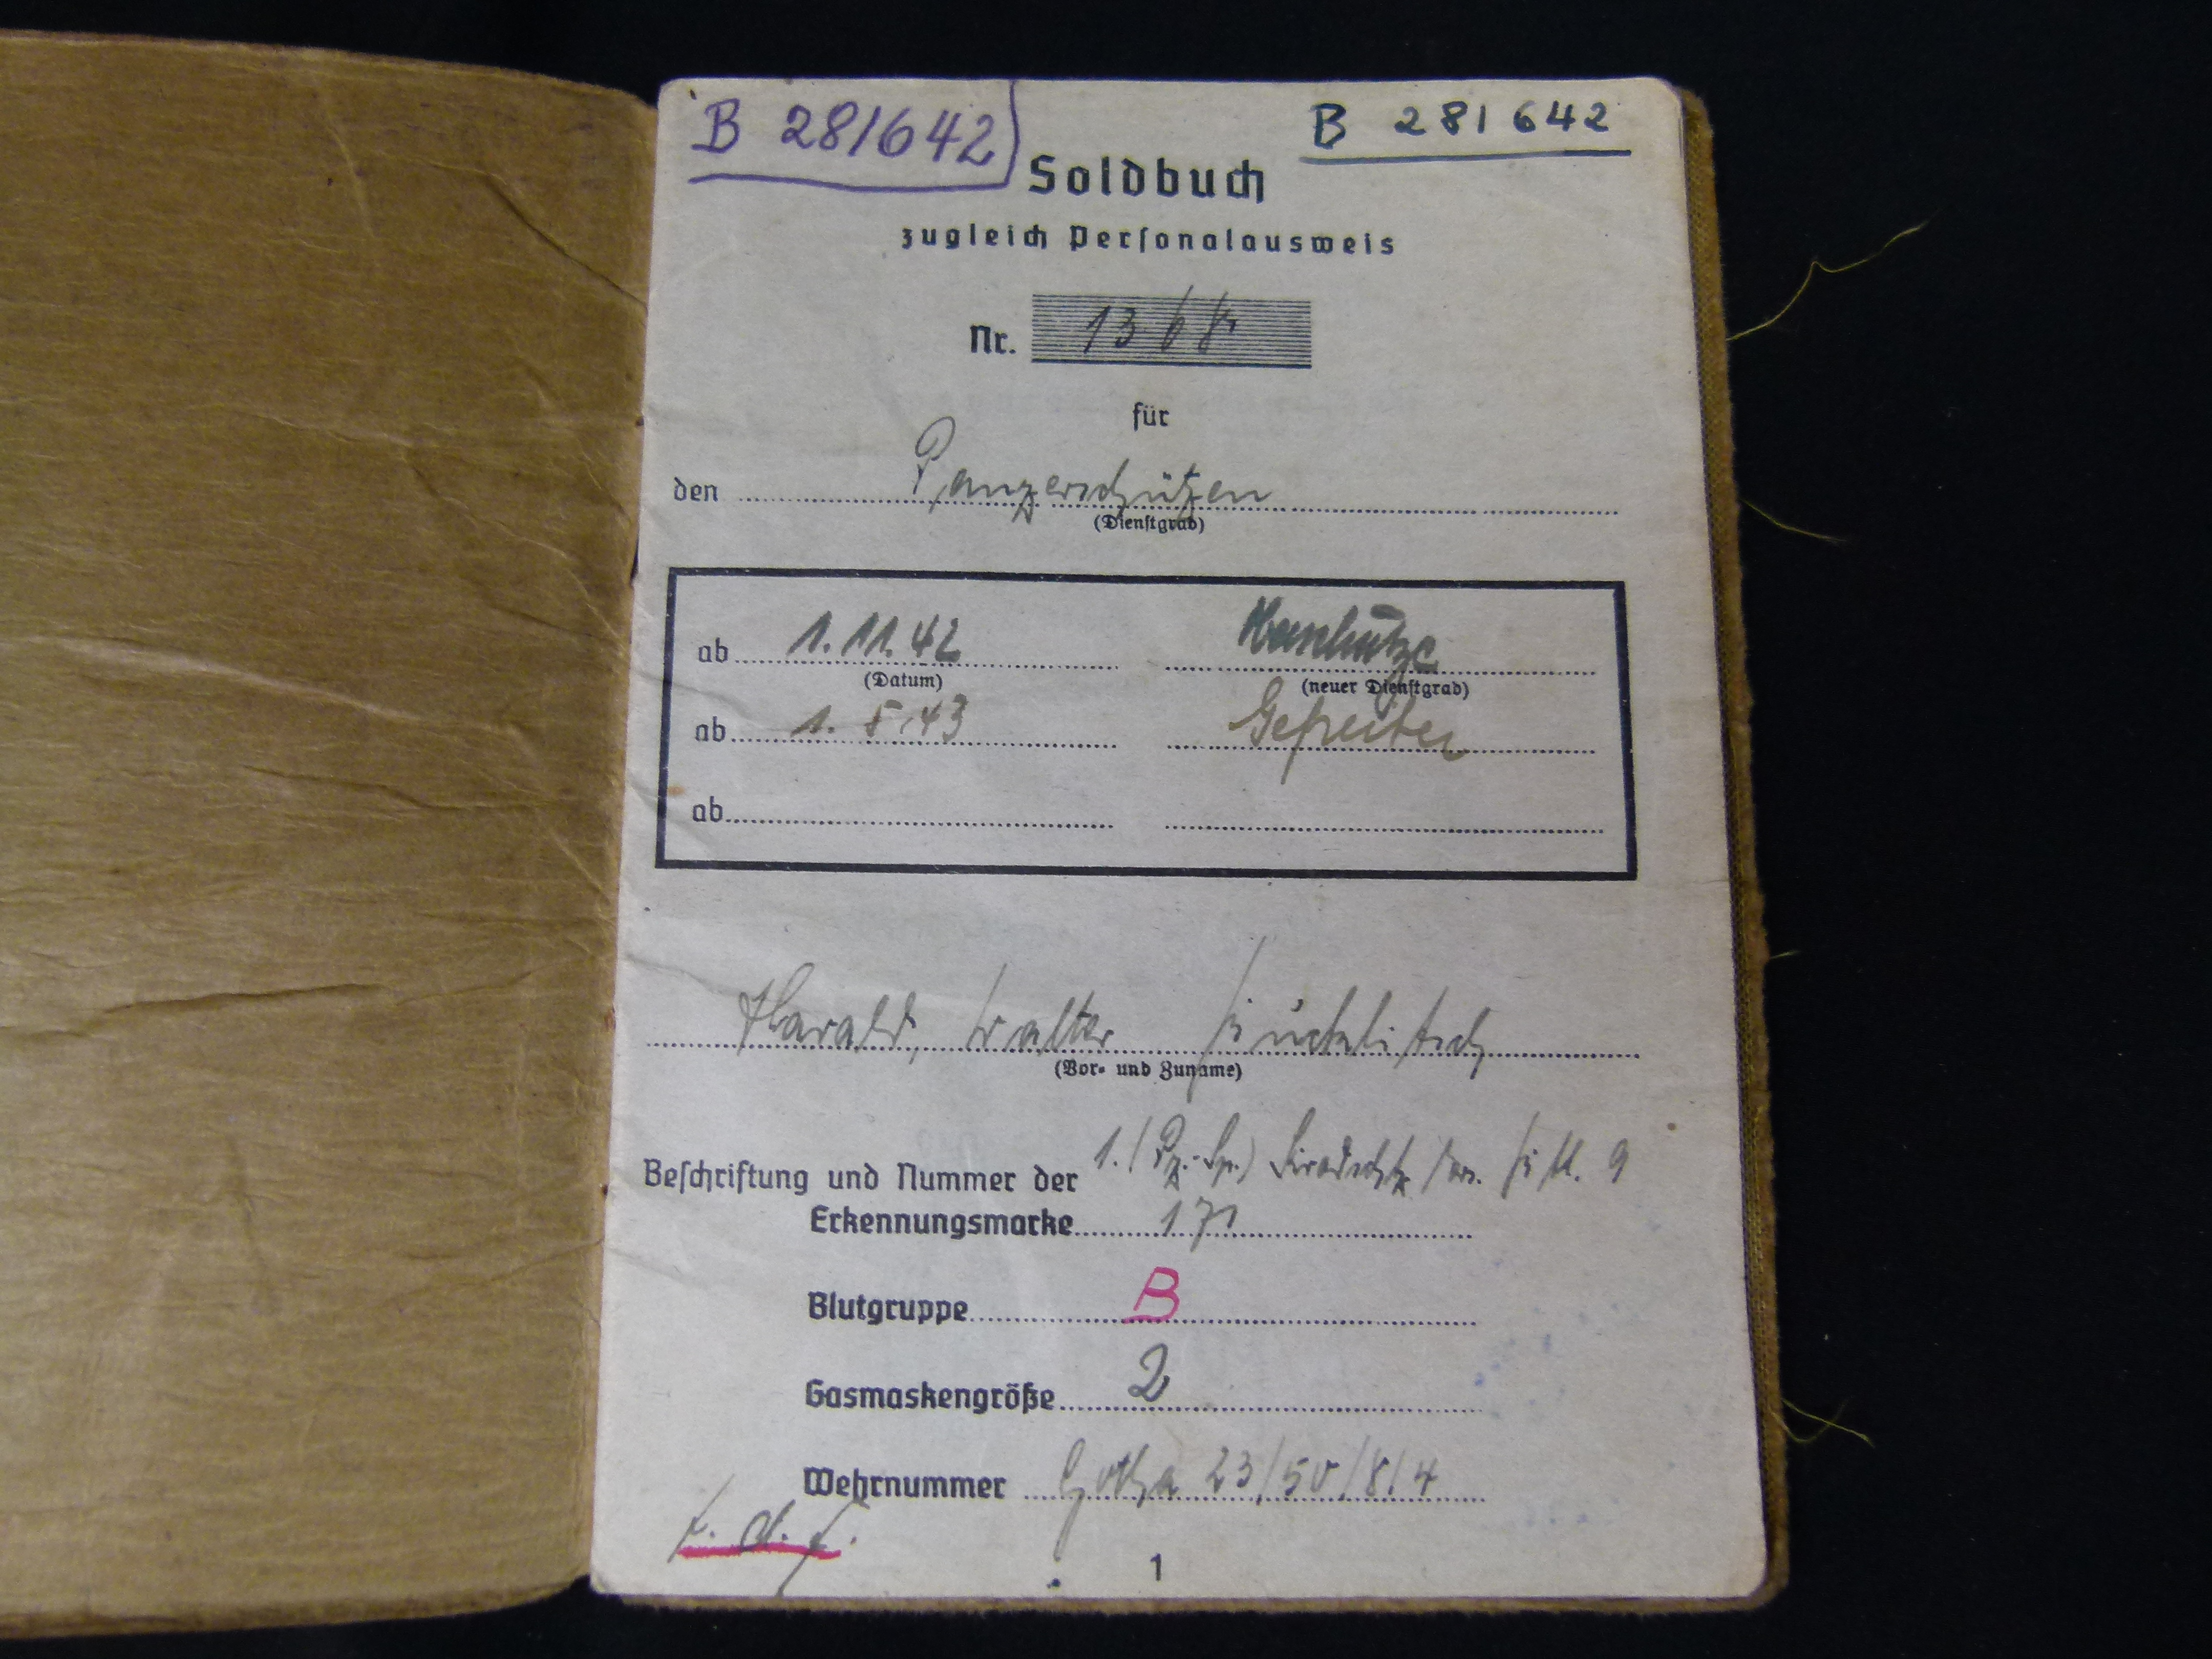 B 281642
B 281642
Soldbuch
zugleich Personalausweis
Nr. 1368
für
den Panzerschützen
(Dienstgrad)
ab 1.11.42
(Datum) (neuer Dienstgrad)
ab 1.5.43 Gefreiter
ab
Harald, Walter
(Vor- und Zuname)
Beschriftung und Nummer der 1./(Pz.-Sp.)
Erkennungsmarke 171
Blutgruppe B
Gasmaskengröße 2
Wehrnummer Gotha 23/50/8/4
1